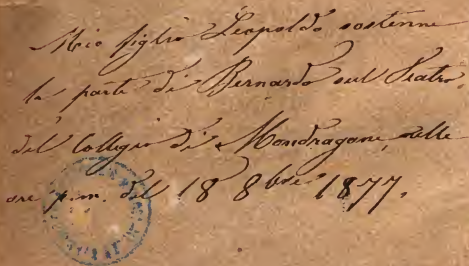 Mio figlio Leopoldo sostenne
la parte di Bernardo sul Teatro
del Collegio di Mondragone, nelle
ore p.m. del 18 8bre 1877.